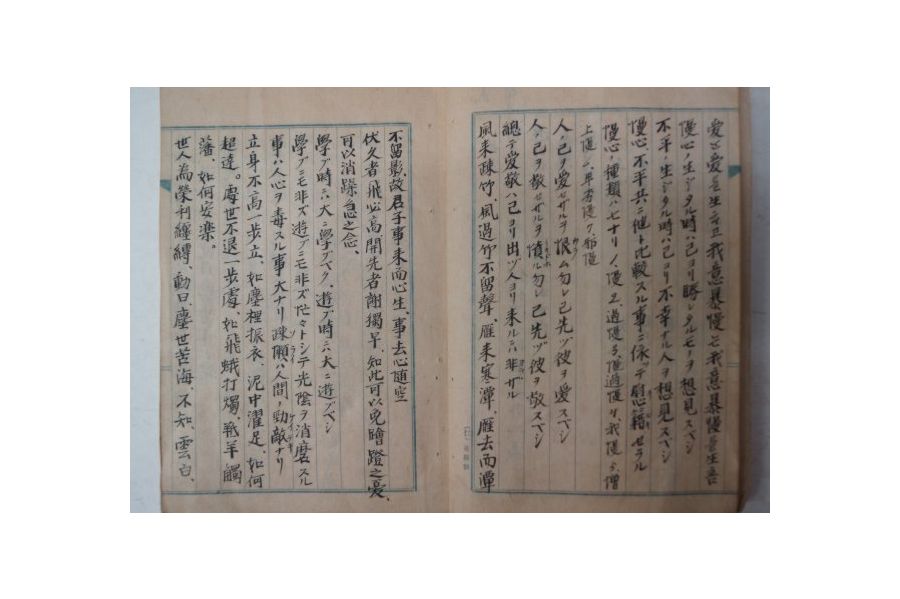 慢心ノ生ジタル時ハ己ヨリ勝レタルモノヲ想見スベシ
不平ノ生ジタル時ハ己ヨリ不幸ナル人ヲ想見スベシ
慢心、不平共ニ他ト比較スル事ニ依ッテ慰藉セラル
慢心ノ種類ハ七ナリ
人ノ己ヲ愛セザルヲ恨ム勿レ己先ヅ彼ヲ愛スベシ
人ノ己ヲ敬セザルヲ憤ル勿レ己先ヅ彼ヲ敬スベシ
總テ愛敬ハ己ヨリ出ヅ人ヨリ来ルニハ非ザル
風来疎竹、風過竹不留聲、雁来寒潭、雁去而潭
不留影、故君子事来而心生、事去心随空
伏久者飛必高開先者謝獨早、知此可以免蹭蹬之憂、
可以消躁急之念、
學ブ時ニハ大ニ學ブベク、遊ブ時ニハ大ニ遊ブベシ
學ブニモ非ズ遊ブニモ非ズ茫々トシテ光陰ヲ消磨スル
事ハ人心ヲ毒スル事大ナリ疎懶ハ人間ノ勁敵ナリ
立身不高一步立、如塵裡振衣、泥中濯足、如何
超達。處世不退一步處、如飛蛾打燭、羝羊觸
藩、如何安楽。
世人為榮利纏縛、動曰、塵世苦海、不知、雲白、